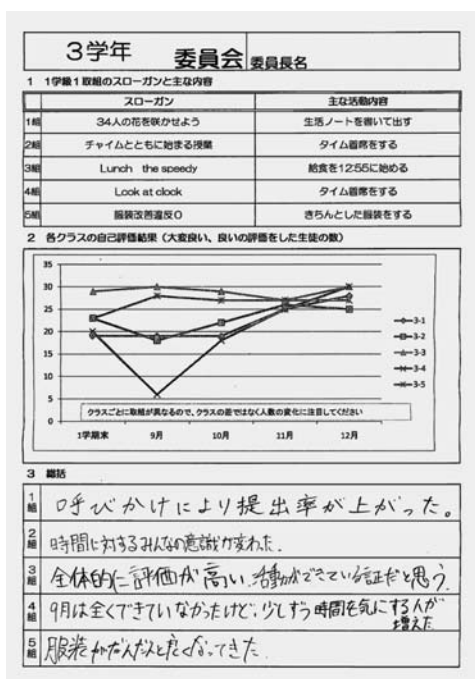 3学年 委員会 委員長名
1 1学級1取組のスローガンと主な内容
スローガン 主な活動内容
1組 34人の花を咲かせよう 生活ノートを書いて出す
2組 チャイムとともに始まる授業 タイム着席をする
3組 Lunch the speedy 給食を12:55に始める
4組 Look at clock タイム着席をする
5組 服装改善違反0 きちんとした服装をする
2 各クラスの自己評価結果（大変良い、良いの評価をした生徒の数）
35
30
25
20
15
10
5
0
3-1
3-2
3-3
3-4
3-5
クラスごとに取組が異なるので、クラスの差ではなく人数の変化に注目してください
1学期末 9月 10月 11月 12月
3 総括
1組 呼びかけにより提出率が上がった。
2組 時間に対するみんなの意識が変わった.
3組 全体的に評価が高い.活動ができている証だと思う.
4組 9月は全くできていなかったけど、少しずつ時間を気にする人が
増えた
5組 服装がだんだんと良くなってきた.